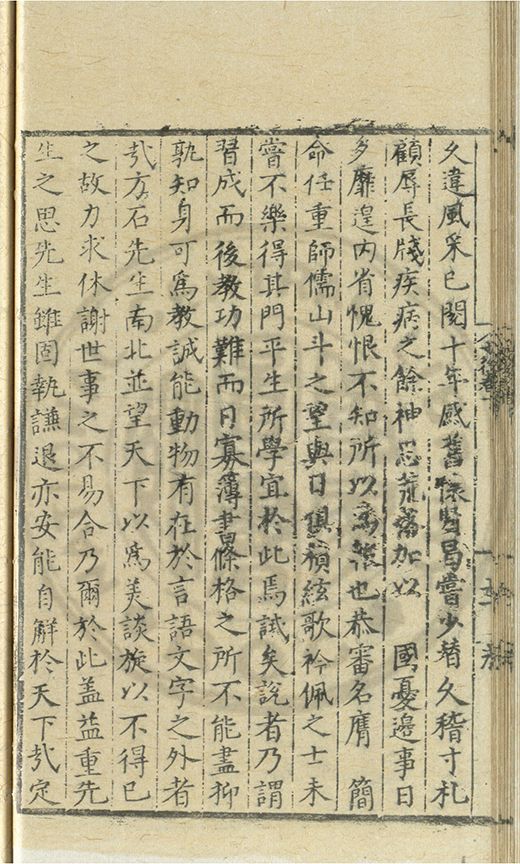 久違風采已閱十年感舊懷賢曷嘗少替久稽寸札
顧辱長牋疾病之餘神思荒落加以 國憂邊事日
多靡遑內省愧恨不知所以爲答也恭審名膺 簡
命任重師儒山斗之望與日俱積絃歌衿佩之士未
嘗不樂得其門平生所學宜於此焉試矣說者乃謂
習成而後教功難而日寡簿書條格之所不能盡抑
孰知身可爲教誠能動物有在於言語文字之外者
㢤方石先生南北並望天下以爲美談旋以不得已
之故力求休謝世事之不易合乃爾於此盖益重先
生之思先生雖固執謙退亦安能自解於天下㢤定